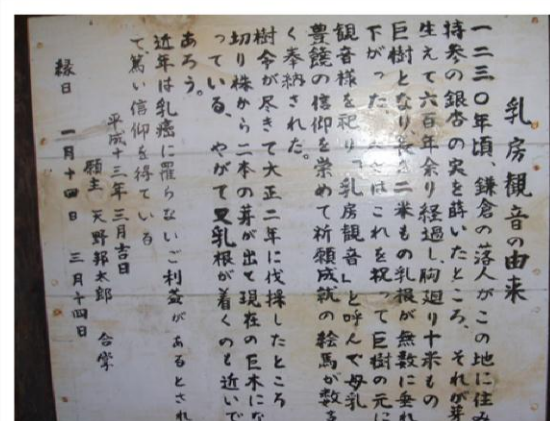 乳房観音の由来
一二三〇年頃、鎌倉の落人がこの地に住み
持参の銀杏の実を蒔いたところ、それが芽
生えて六百年余り経過し、胴廻り十米もの
巨樹となり、長さ二米もの乳根が無数に垂れ
下がった。 はこれを祝って巨樹の元に
観音様を祀り「乳房観音」と呼んで母乳
豊饒の信仰を崇めて祈願成就の絵馬が数多
く奉納された。
樹令が尽きて大正二年に伐採したところ
切り株から二本の芽が出て現在の巨木にな
っている、やがて又乳根が着くのも近いで
あろう。
近年は乳癌に罹らないご利益があるとされ
て、篤い信仰を得ている
平成十三年三月吉日
願主 天野邦太郎 合掌
縁日 一月十四日 三月十四日